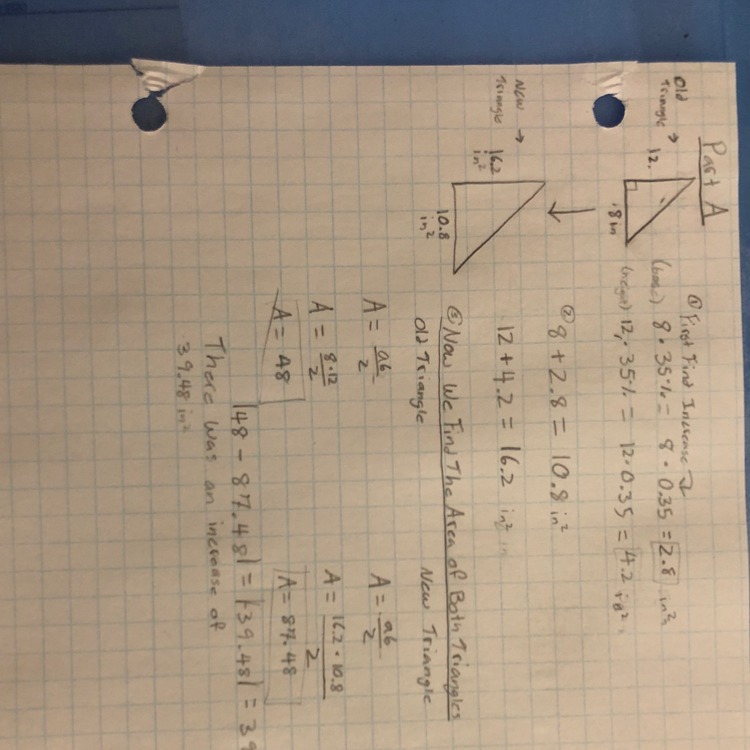 Part A
Old
Triangle →
12.
8 in
① First Find Increase
(base) 8 · 35% = 8 · 0.35 = 2.8 in²
(height) 12 · 35% = 12 · 0.35 = 4.2 in²
② 8 + 2.8 = 10.8 in²
12 + 4.2 = 16.2 in²
New
Triangle →
16.2
in²
10.8
in²
③ Now We Find The Area of Both Triangles
Old Triangle
A = ab/2
A = 8·12/2
A = 48
New Triangle
A = ab/2
A = 16.2 · 10.8/2
A = 87.48
|48 - 87.48| = |39.48| = 39
There was an increase of
39.48 in²